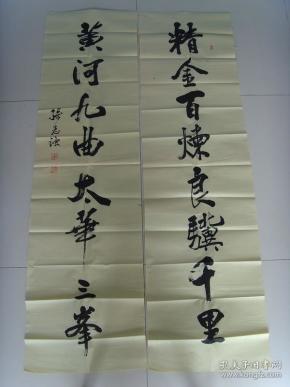 精金百煉良驥千里
黄河九曲太華三峯
孔夫子旧书网